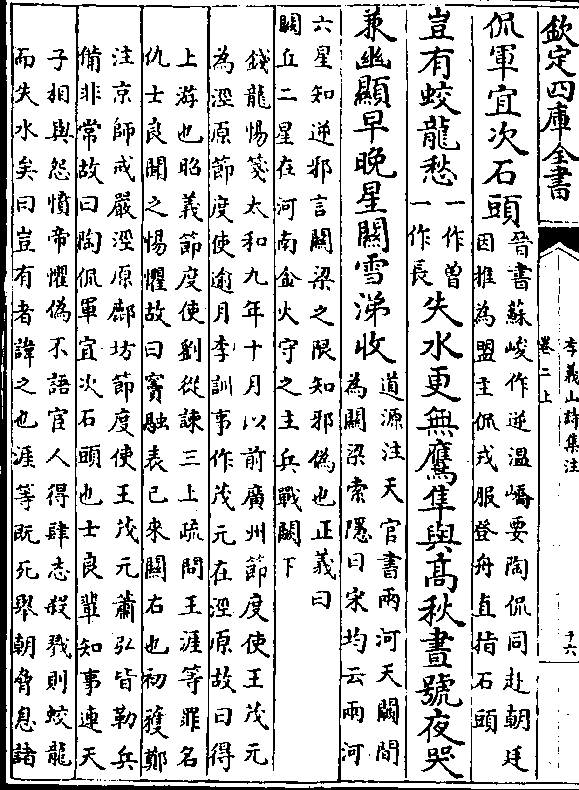 欽定四庫全書
李義山詩集注
卷二上
十六
侃軍宜次石頭
晉書蘇峻作逆溫嶠要陶侃同赴朝廷
因推為盟主侃戎服登舟直指石頭
豈有蛟龍愁
一作曾
一作長
失水更無鷹隼與高秋晝號夜哭
兼幽顯早晚星關雪涕收
道源注天官書兩河天闕間
為關梁索隱曰宋均云兩河
六星知逆邪言關梁之限知邪偽也正義曰
闕丘二星在河南金火守之主兵戰闕下
錢龍惕箋太和九年十月以前廣州節度使王茂元
為涇原節度使逾月李訓事作茂元在涇原故曰得
上游也昭義節度使劉從諫三上疏問王涯等罪名
仇士良聞之惕懼故曰竇融表已來關右也初獲鄭
注京師戒嚴涇原鄜坊節度使王茂元蕭弘皆勒兵
備非常故曰陶侃軍宜次石頭也士良輩知事連天
子相與怨憤帝懼偽不語宦人得肆志殺戮則蛟龍
而失水矣曰豈有者諱之也涯等既死舉朝脅息諸